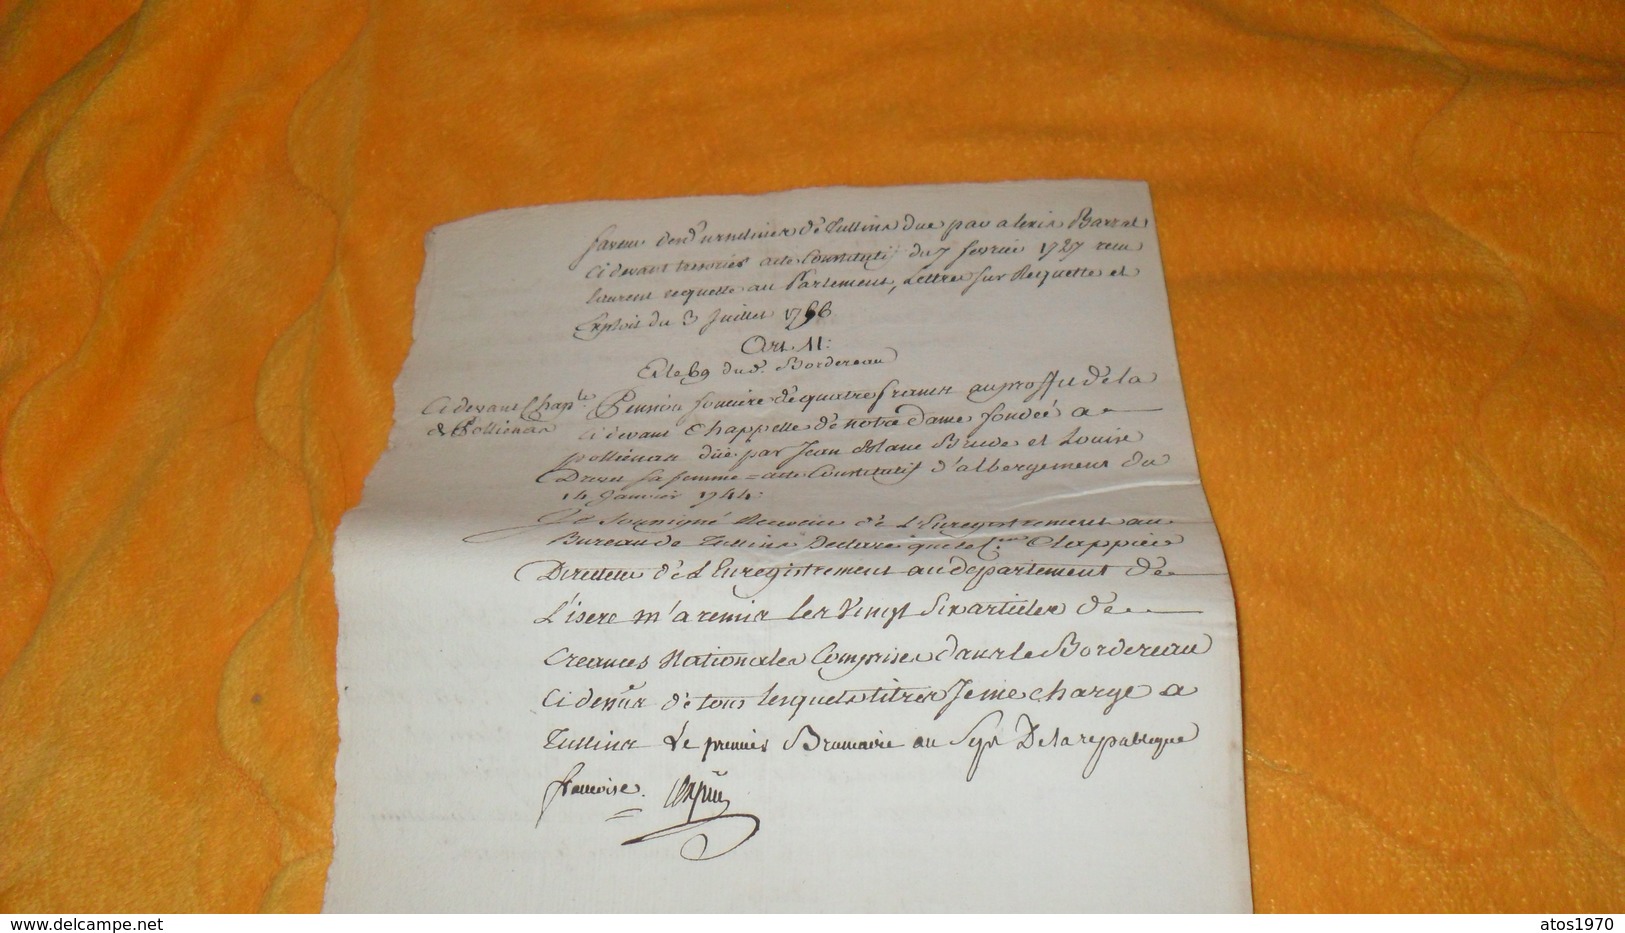 faveur des d. ursulines de Tullins due par alexis Barral
ci devant tresorier acte Constitutif du 7 fevrier 1727
laurent requette au Parlement, Lettre sur Requette et
Exploit du 3 Juillet 1766
Art. 11:
Et le 69 du d. Bordereau
Ci devant Chap.le
de Pollienas
Pension fonciere de quatre francs au proffit de la
ci devant Chappelle de notre Dame fondée a
pollienas düe par Jean Blanc Brude et Louise
Drevet sa femme = acte Constitutif d'albergement du
14 Janvier 1744:
Je Soussigné Receveur de L'Enregistrement au
Bureau de Tullins Declare que le C.en Clappier
Directeur de L'Enregistrement au departement de
L'isere m'a remis les Vingt Six articles de
Creances Nationales Comprises dans le Bordereau
Ci dessus de tous lesquels titres Je me charge a
Tullins Le premier Brumaire an Sept De la republique
francoise.
atos1970